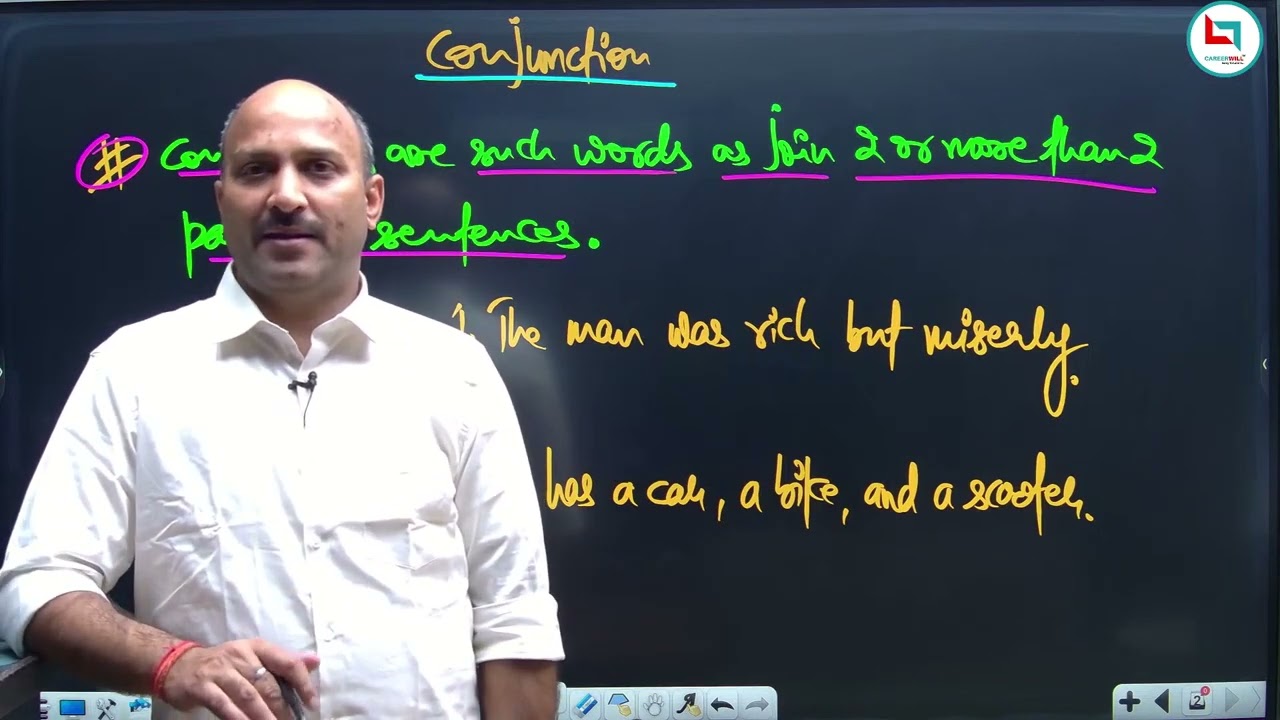 Conjunction
CAREERWILL
# con are such words as join 2 or more than 2
pa sentences.
1. The man was rich but miserly.
has a car, a bike, and a scooter.
2